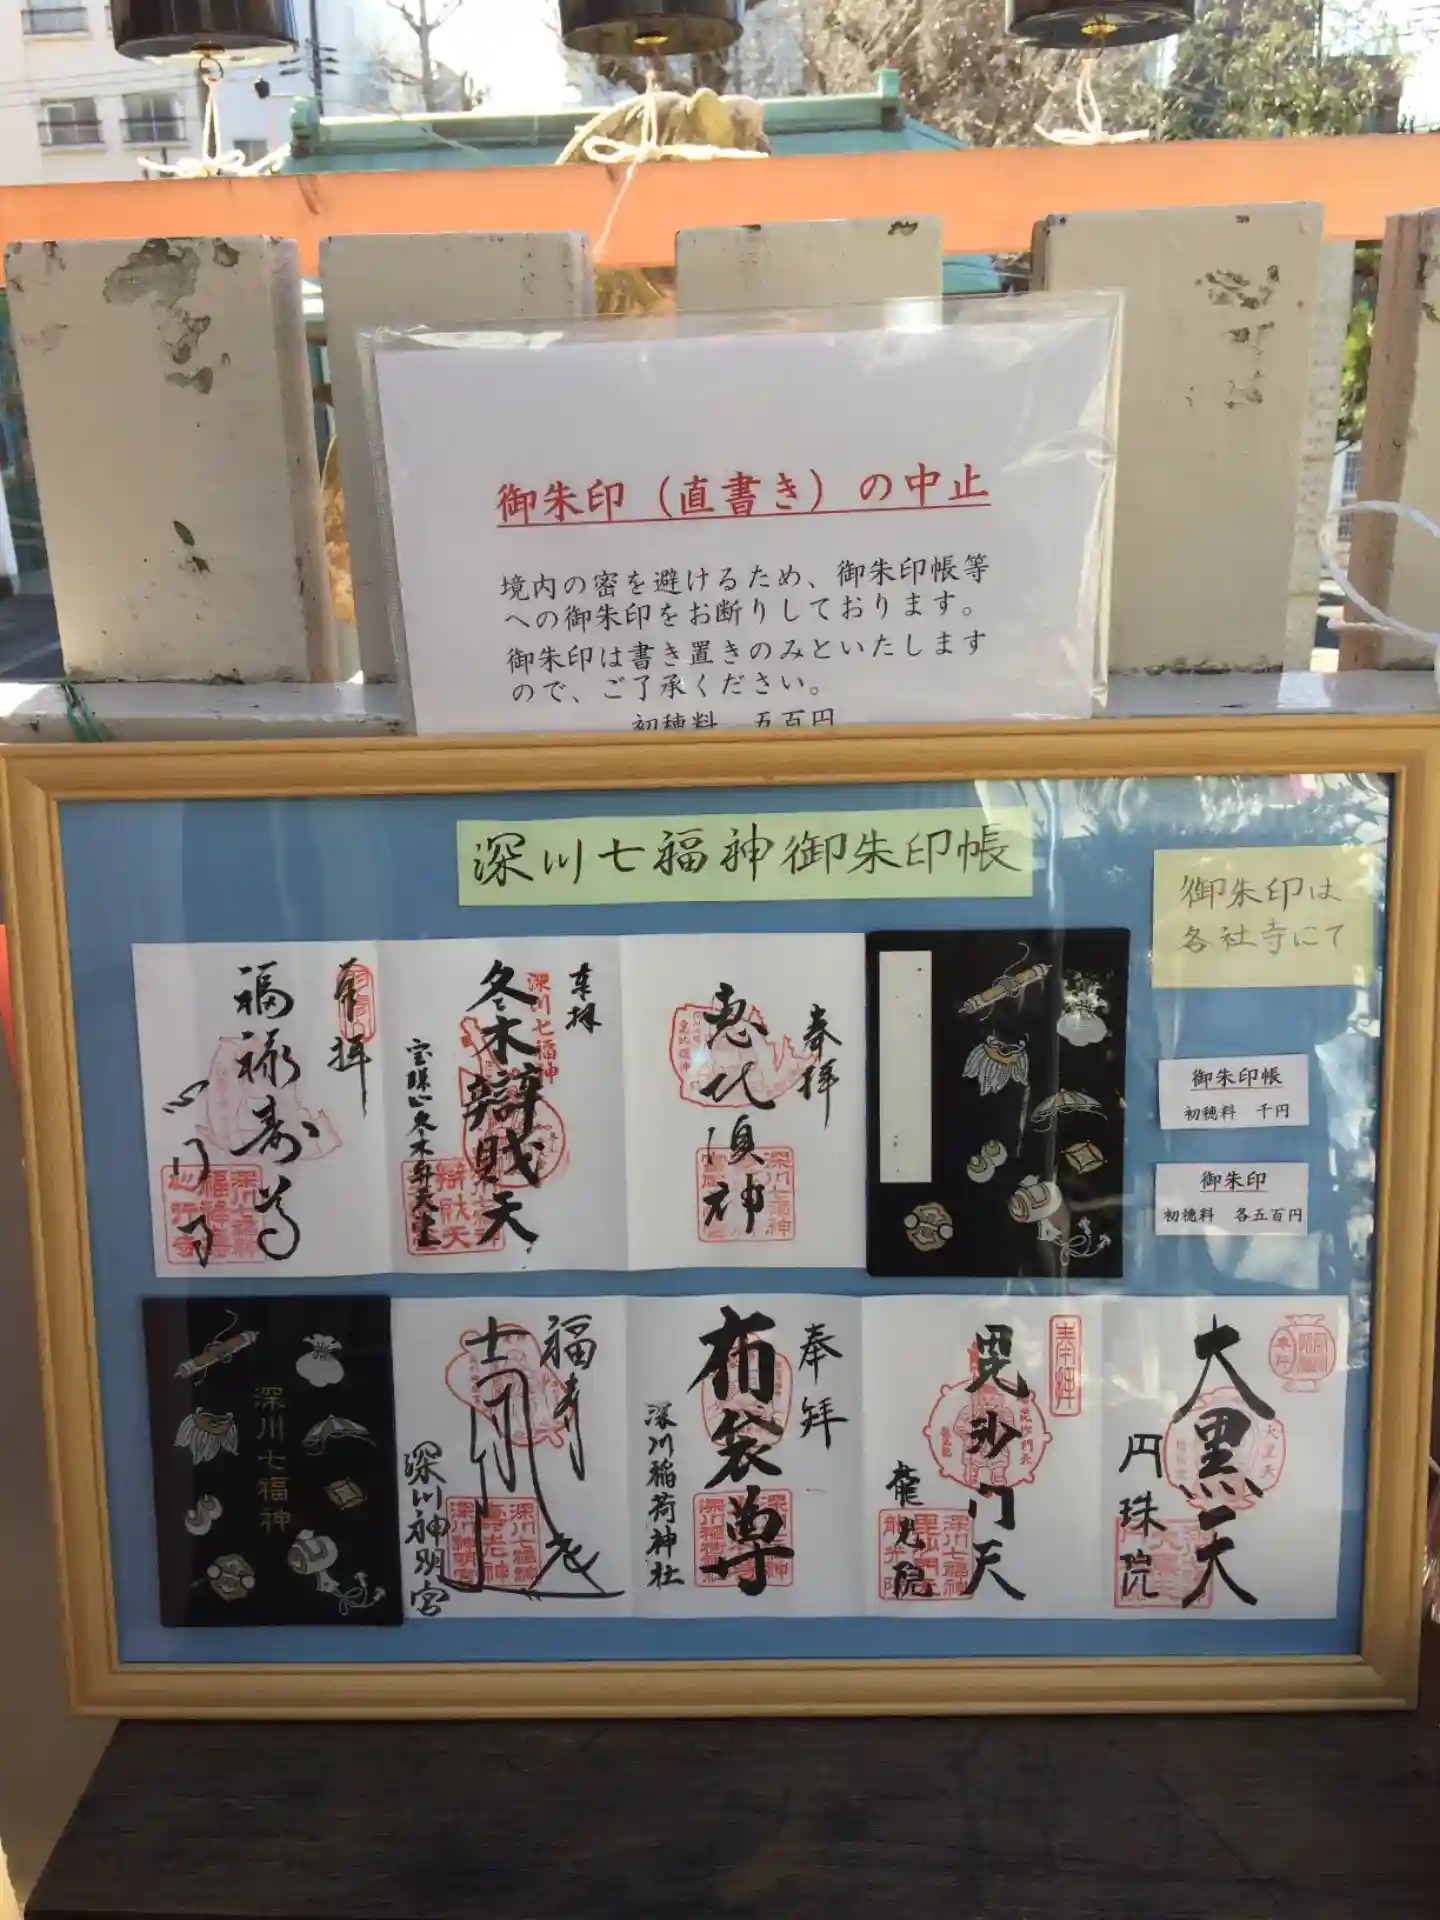 御朱印（直書き）の中止
境内の密を避けるため、御朱印帳等
への御朱印をお断りしております。
御朱印は書き置きのみといたします
ので、ご了承ください。
初穂料　五百円
深川七福神御朱印帳
御朱印は
各社寺にて
御朱印帳
初穂料　千円
御朱印
初穂料　各五百円
奉拝
恵比須神
奉拝
深川七福神
冬木辯財天
奉拝
福禄寿尊
心行寺
大黒天
円珠院
奉拝
毘沙門天
龍光院
奉拝
布袋尊
深川稲荷神社
福
寿老
士
深川神明宮
深川七福神